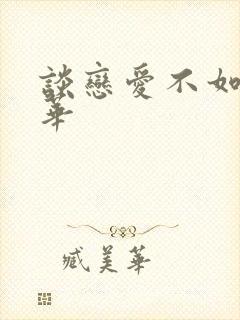 談戀愛不如
華
臧美華